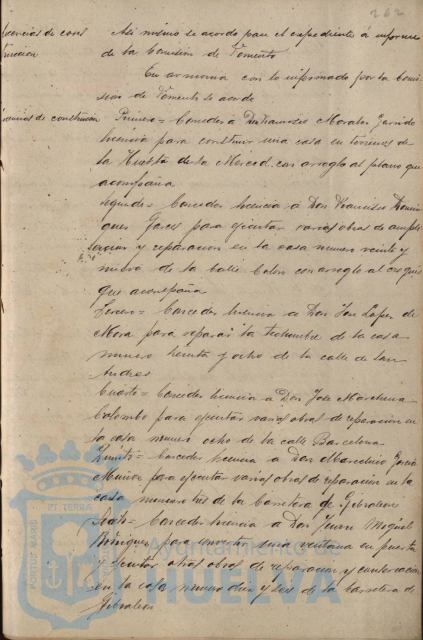 262
licencias de cons
truccion
Asi mismo se acordo pase el expediente á informe
de la Comisión de Fomento
En armonia con lo informado por la Comi
sion de Fomento se acordo
licencias de construccion
Primero = Conceder á Don Francisco Morales Garrido
licencia para construir una casa en terrenos de
la Huerta de la Merced con arreglo al plano que
acompaña
Segundo = Conceder licencia a Don Francisco Domin
guez Garces para ejecutar varias obras de amplia
cion y reparacion en la casa numero veinte y
nueve de la Calle Colon con arreglo al croquis
que acompaña
Tercero = Conceder licencia a Don José Lopez de
Mora para reparar la techumbre de la casa
numero treinta y ocho de la calle de San
Andres
Cuarto = Conceder licencia a Don José Marchena
Colombo para ejecutar varias obras de reparacion en
la casa numero ocho de la calle Barcelona
Quinto = Conceder licencia a Don Marcelino Garcia
Muñoz para ejecutar varias obras de reparacion en la
casa numero tres de la Carretera de Gibraleon
Sexto = Conceder licencia a Don Juan Miguel
Minguez para convertir una ventana en puerta
y ejecutar otras obras de reparacion y conservacion
en la casa numero diez y seis de la carretera de
Gibraleon
PORTUS MARIS
ET TERRA
Ayuntamiento de
HUELVA